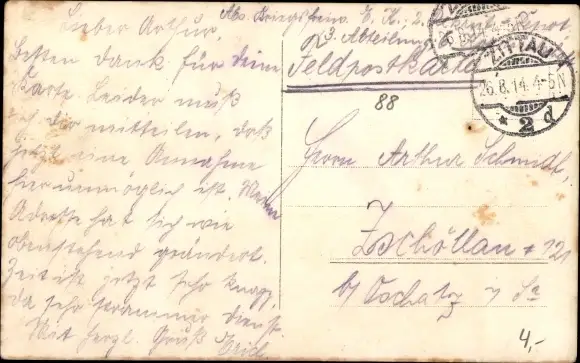 Lieber Arthur,
Besten Dank für deine
Karte. Leider muß
ich dir mitteilen, daß
jetzt eine Annahme
hier unmöglich ist. Meine
Adresse hat sich wie
obenstehend geändert.
Zeit ist jetzt sehr knapp,
da sehr strammer Dienst.
Mit herzl. Gruß Erich
Abs. Kriegsfreiw. E. K.
3. Abteilung
Feldpostkarte
ZITTAU
26.8.14.4-5N
* 2 d
88
Herrn Arthur Schmidt,
Zschöllau 121
b/ Oschatz i/ Sa
4,-